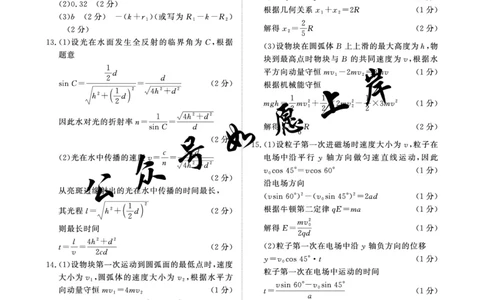 (2)0.32 (2分)
(3)b (2分) −(k+r₁)(或写为 R₁−k−R₂)
(2分)
13.(1)设光在水面发生全反射的临界角为 C,根据
题意
sin C = (1/2 d)/√(h²+(1/2 d)²) = d/√(4h²+d²) (2分)
因此水对光的折射率 n = 1/sin C = √(4h²+d²)/d
(2分)
(2)光在水中传播的速度 v = c/n
(2分)
从亮斑边缘射出的光在水中传播的时间最长,
其光程 l = √(h²+(1/2 d)²) (2分)
则最长时间
t = l/v = (4h²+d²)/(2cd) (2分)
14.(1)设物块第一次运动到圆弧面的最低点时,速度
大小为 v₁,圆弧体的速度大小为 v₂,根据水平方
向动量守恒 mv₁=4mv₂ (1分)
根据几何关系 x₁+x₂=2R (1分)
解得 x₂ = 2/5 R (2分)
(3)设物块在圆弧体 B 上上滑的最大高度为 h,物
块到最高点时物块与 B 的共同速度为 v,根据水
平方向动量守恒 (1分)
根据机械能守恒
(1分)
解得 R (2分)
15.(1)设粒子第一次进磁场时速度大小为 v,粒子在
电场中沿平行 y 轴方向做匀速直线运动,因此
v₀cos 45°=vcos 60° (1分)
沿电场方向
(vsin 60°)²−(v₀sin 45°)²=2ad (1分)
根据牛顿第二定律 qE=ma (1分)
解得 E = mv₀²/2qd (1分)
(2)粒子第一次在电场中沿 y 轴负方向的位移
y=v₀cos 45°·t (1分)
粒子第一次在电场中运动的时间
t = (vsin 60°−v₀sin 45°)/a (1分)
公众号如愿上岸